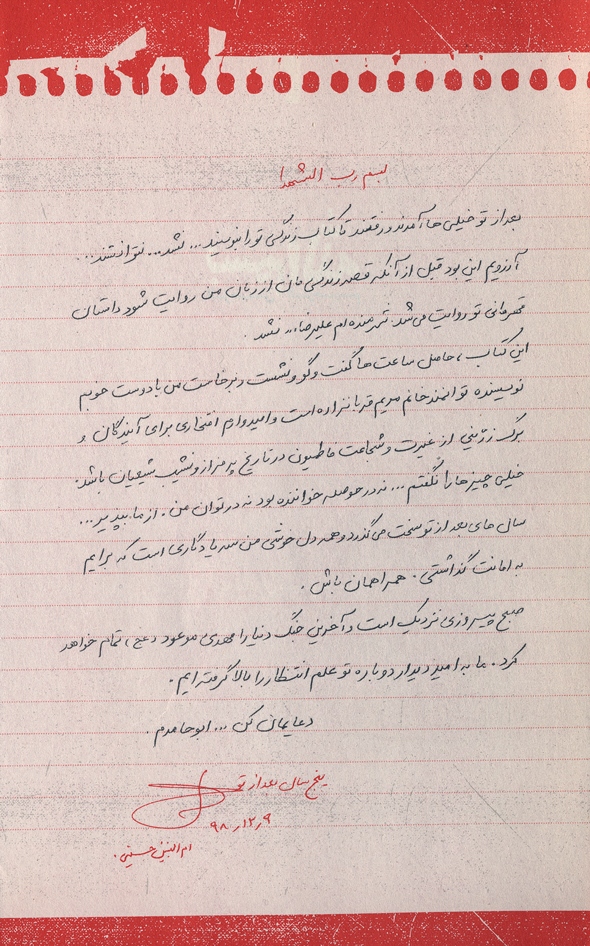 بسم رب الشهدا
بعد از تو خیلی ها آمدند و رفتند تا کتاب زندگی تو را بنویسند... نشد... نتوانستند...
آرزویم این بود قبل از آنکه قصه زندگی مان از زبان من روایت شود داستان
قهرمانی تو روایت می‌شد. شرمنده ام علیرضا،، نشد.
این کتاب، حاصل ساعت ها گفت و گو و نشست و برخاست من با دوست خوبم
نویسنده توانمند خانم مریم قربانزاده است و امیدوارم افتخاری برای آیندگان و
برگ زرّینی از غیرت و شجاعت فاطمیون در تاریخ پر فراز و نشیب شیعیان باشد.
خیلی چیزها را نگفتم... نه در حوصله خواننده بود نه در توان من. از ما بپذیر...
سال های بعد از تو سخت می گذرد و همه دل خوشی من سه یادگاری است که برایم
به امانت گذاشتی. همراهمان باش.
صبح پیروزی نزدیک است و آخرین جنگ دنیا را مهدی موعود (عج) تمام خواهد
کرد. ما به امید دیدار دوباره تو علم انتظار را بالا گرفته ایم.
دعایمان کن... ابوحامدم.
پنج سال بعد از تو
۹٫۱۲٫۹۸
ام البنین حسینی.